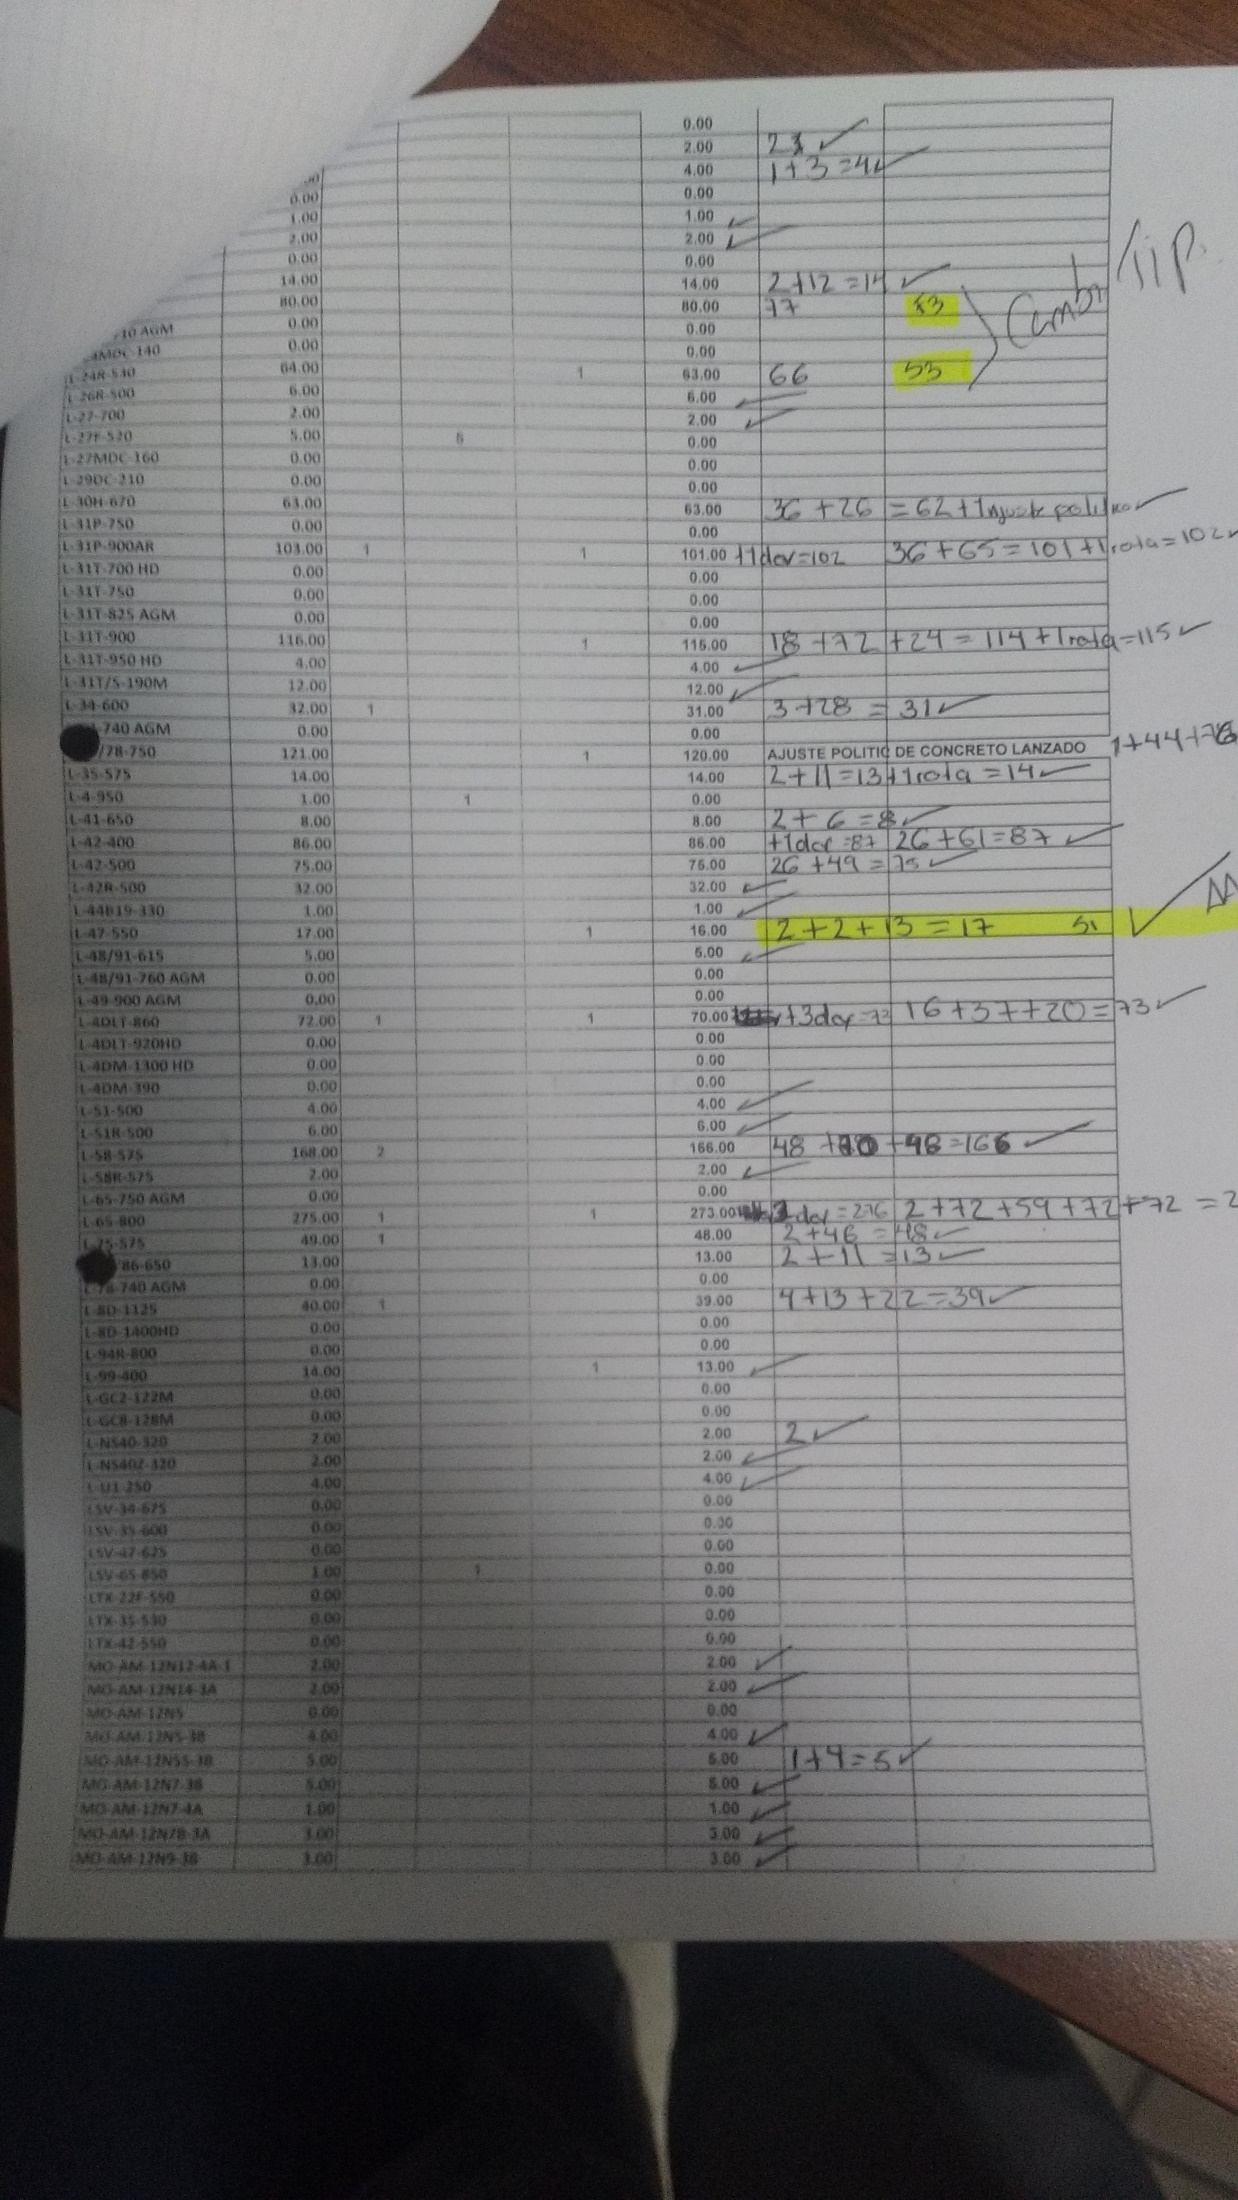 0.00
2.00 2
4.00 1+3=4
0.00 0.00
1.00 1.00
2.00 2.00
0.00 0.00
14.00 14.00 2+12=14
80.00 80.00 77
10 AGM 0.00 0.00
MDC-140 0.00 0.00
L-24R-530 64.00 1 63.00 66 53
L-26R-500 6.00 6.00
L-27-700 2.00 2.00
L-27F-520 5.00 0.00
L-27MDC-160 0.00 0.00
L-29DC-210 0.00 0.00
L-30H-670 63.00 63.00 36+26 =62+1 Ajuste
L-31P-750 0.00 0.00
L-31P-900AR 103.00 1 1 101.00 +1dev=102 36+65=101+1rota=102
L-31T-700 HD 0.00 0.00
L-31T-750 0.00 0.00
L-31T-825 AGM 0.00 0.00
L-31T-900 116.00 1 115.00 18+72+24=114+1rota=115
L-31T-950 HD 4.00 4.00
L-31T/S-190M 12.00 12.00
L-34-600 32.00 1 31.00 3+28=31
-740 AGM 0.00 0.00
/78-750 121.00 1 120.00 AJUSTE POLITIC DE CONCRETO LANZADO 1+44+
L-35-575 14.00 14.00 2+11=13+1rota=14
L-4-950 1.00 1 0.00
L-41-650 8.00 8.00 2+6=8
L-42-400 86.00 86.00 +1dev=87 26+61=87
L-42-500 75.00 75.00 26+49=75
L-42R-500 32.00 32.00
L-44B19-330 1.00 1.00
L-47-550 17.00 1 16.00 2+2+13=17
L-48/91-615 5.00 5.00
L-48/91-760 AGM 0.00 0.00
L-49-900 AGM 0.00 0.00
L-4DLT-860 72.00 1 1 70.00 +3dev=73 16+37+20=73
L-4DLT-920HD 0.00 0.00
L-4DM-1300 HD 0.00 0.00
L-4DM-390 0.00 0.00
L-51-500 4.00 4.00
L-51R-500 6.00 6.00
L-58-575 168.00 2 166.00 48+ +48=166
L-58R-575 2.00 2.00
L-65-750 AGM 0.00 0.00
L-65-800 275.00 1 1 273.00 dev=276 2+72+59+72+72=2
L-75-575 49.00 1 48.00 2+46=48
86-650 13.00 13.00 2+11=13
L-78-740 AGM 0.00 0.00
L-8D-1125 40.00 1 39.00 4+13+22=39
L-8D-1400HD 0.00 0.00
L-94R-800 0.00 0.00
L-99-400 14.00 1 13.00
L-GC2-122M 0.00 0.00
L-GC8-128M 0.00 0.00
L-NS40-320 2.00 2.00 2
L-NS40Z-320 2.00 2.00
L-U1-250 4.00 4.00
LSV-34-675 0.00 0.00
LSV-35-600 0.00 0.00
LSV-47-625 0.00 0.00
LSV-65-850 1.00 1 0.00
LTX-22F-550 0.00 0.00
LTX-35-530 0.00 0.00
LTX-42-550 0.00 0.00
MO-AM-12N12-4A-1 2.00 2.00
MO-AM-12N14-3A 2.00 2.00
MO-AM-12N5 0.00 0.00
MO-AM-12N5-3B 4.00 4.00
MO-AM-12N55-3B 5.00 5.00 1+4=5
MO-AM-12N7-3B 5.00 5.00
MO-AM-12N7-4A 1.00 1.00
MO-AM-12N7B-3A 3.00 3.00
MO-AM-12N9-3B 3.00 3.00